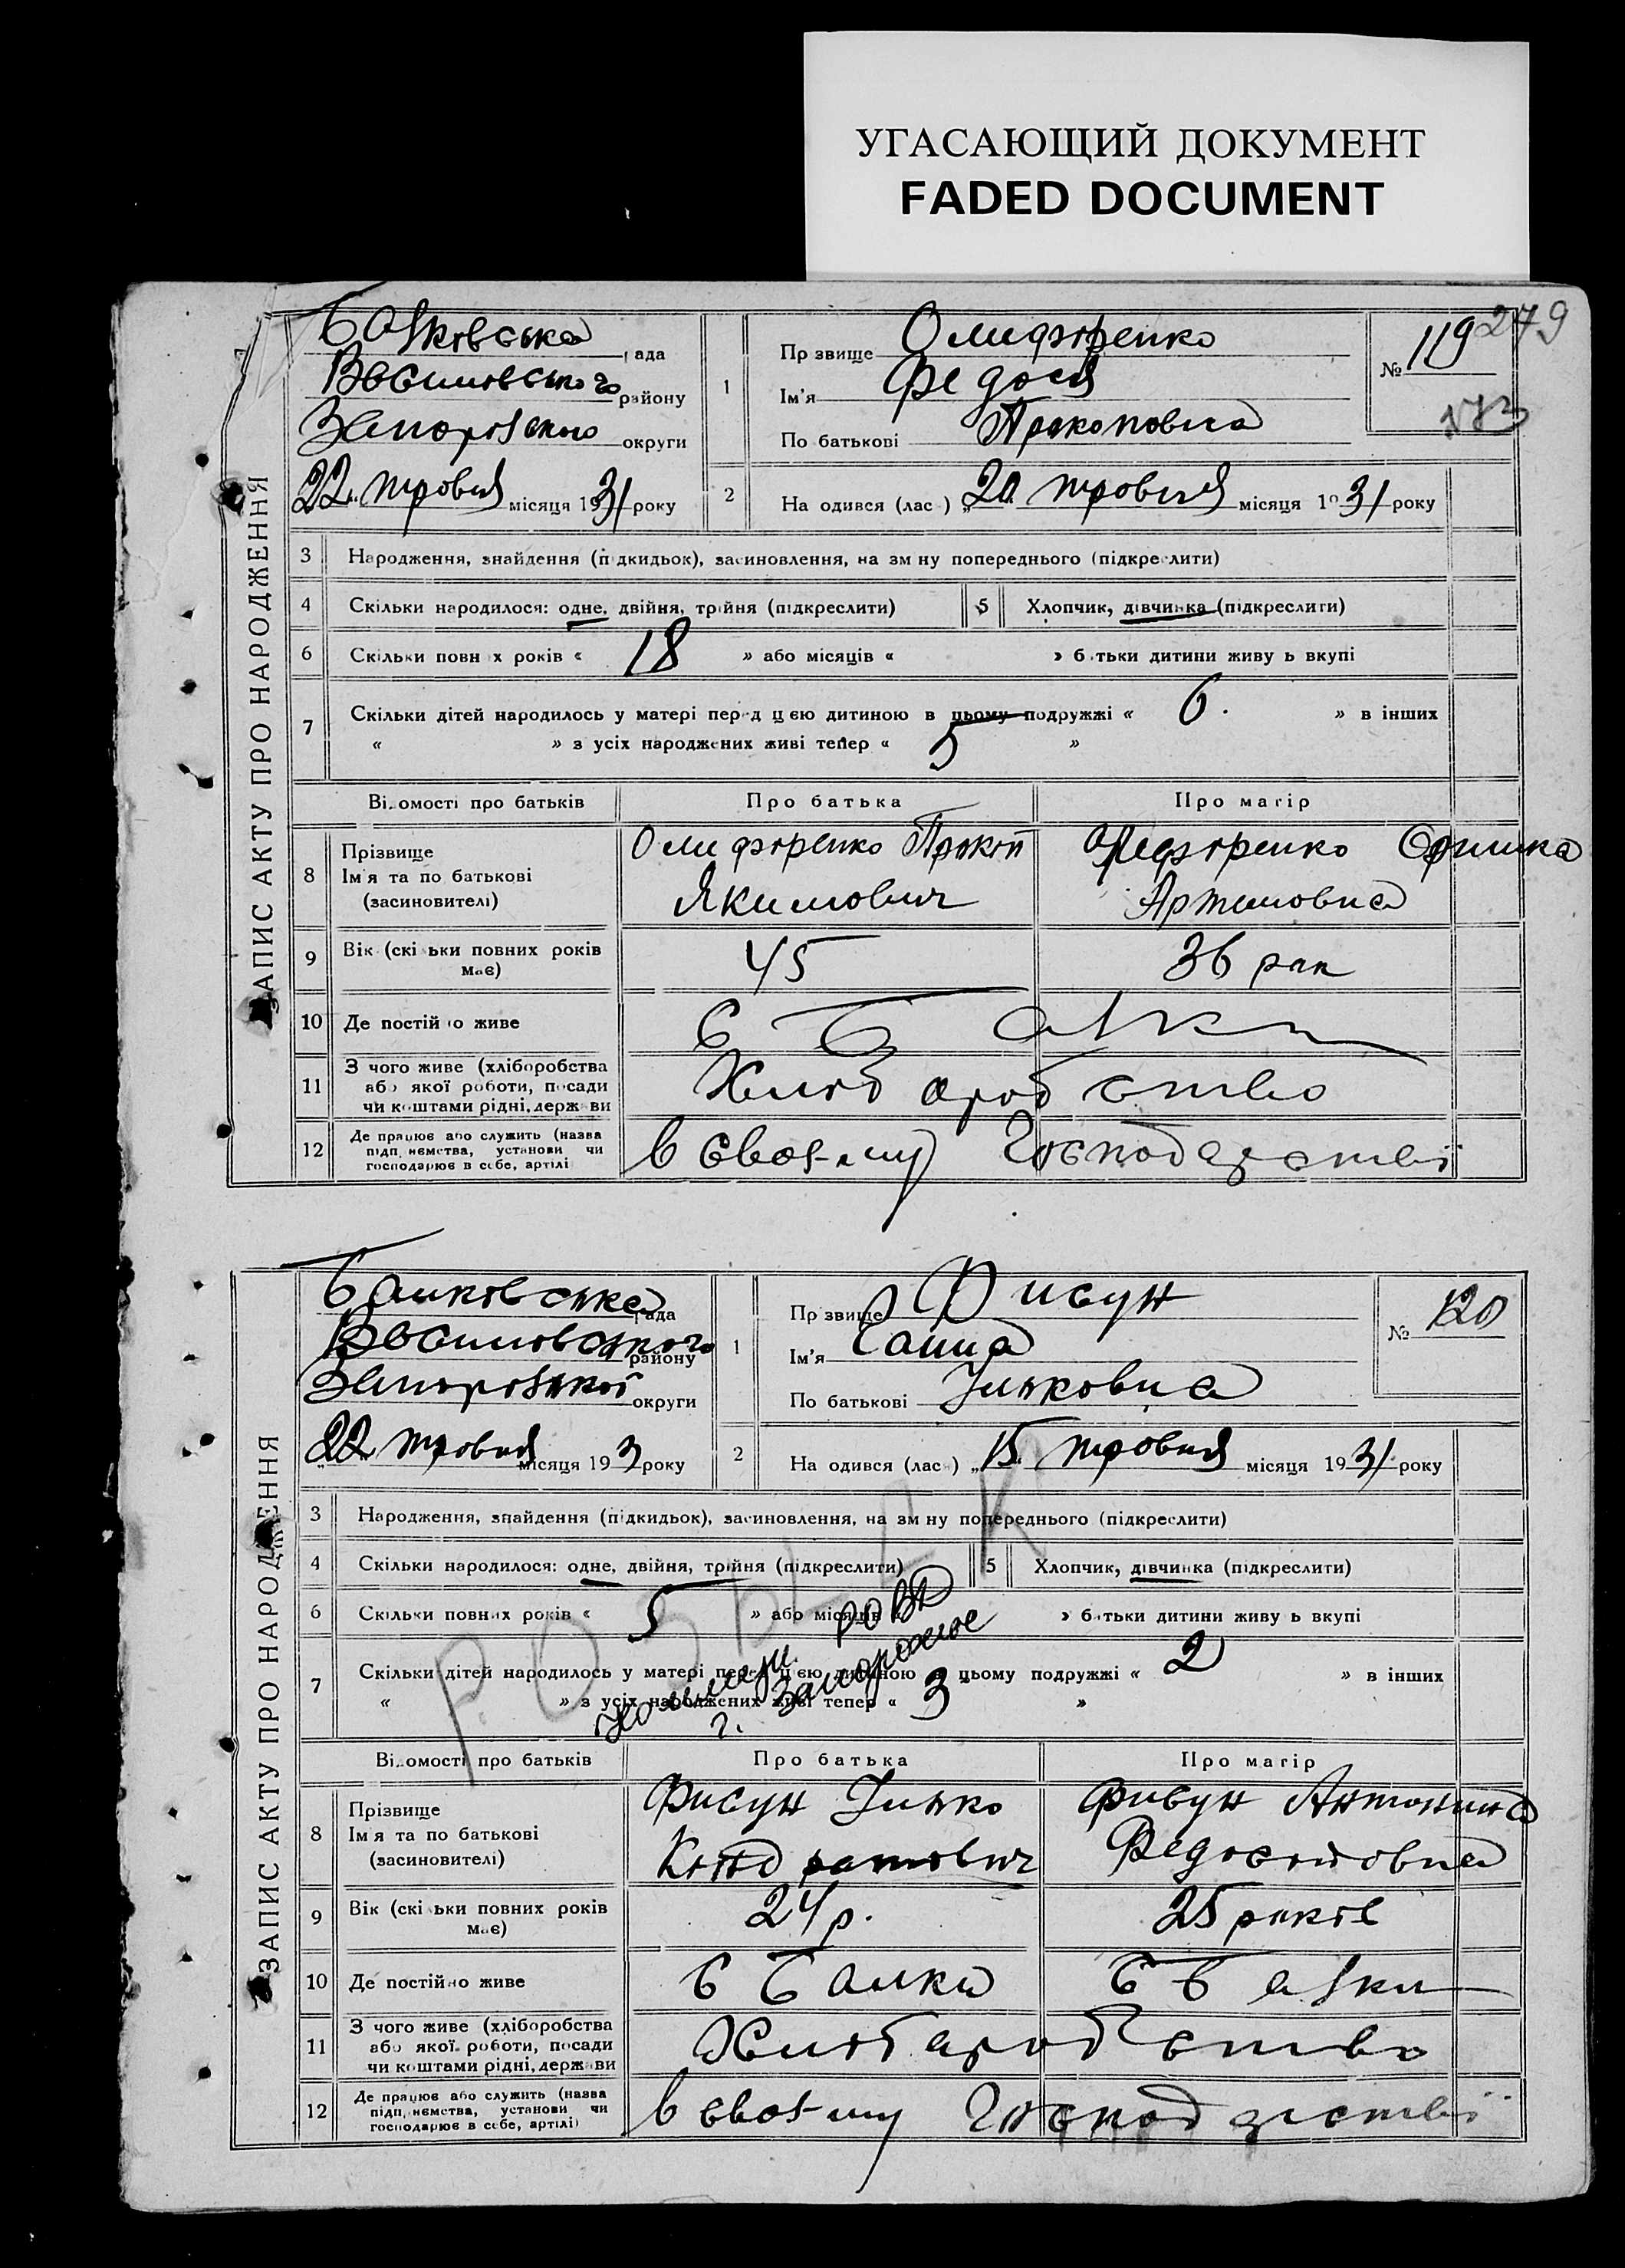 УГАСАЮЩИЙ ДОКУМЕНТ
FADED DOCUMENT
279
ЗАПИС АКТУ ПРО НАРОДЖЕННЯ
Балковська рада
Василівського району
Запорізького округи
22 травня місяця 1931 року
1
Прізвище Олифіренко
Ім'я Федося
По батькові Прокоповна
№ 119
2 На одився (лас ) „20 травня місяця 1931 року
3 Народження, знайдення (підкидьок), засиновлення, на зм ну попереднього (підкреслити)
4 Скільки народилося: одне, двійня, трійня (підкреслити) 5 Хлопчик, дівчинка (підкреслити)
6 Скільки повн х років « 18 » або місяців « » б тьки дитини живу ь вкупі
7 Скільки дітей народилось у матері перед цією дитиною в цьому подружжі « 6. » в інших
« » з усіх народжених живі тепер « 5 »
Відомості про батьків Про батька Про матір
8 Прізвище Ім'я та по батькові (засиновителі) Олифіренко Прокіп Олефіренко Оришка
Якимович Артемовна
9 Вік (скі ьки повних років має) 45 36 рок
10 Де постійно живе С Балки
11 З чого живе (хліборобства або якої роботи, посади чи коштами рідні, держави Хліборобство
12 Де працює або служить (назва підп, ємства, установи чи господарює в себе, артілі в своєму господарстві
ЗАПИС АКТУ ПРО НАРОДЖЕННЯ
Балковська рада
Василівського району
Запорізької округи
22 травня місяця 193 року
1
Пр звище Фисун
Ім'я Ганна
По батькові Ілько́вна
№ 120
2 На одився (лас ) „15 травня місяця 1931 року
3 Народження, знайдення (підкидьок), засиновлення, на зм ну попереднього (підкреслити)
4 Скільки народилося: одне, двійня, трійня (підкреслити) 5 Хлопчик, дівчинка (підкреслити)
6 Скільки повних років « 5 » або місяців « » б тьки дитини живу ь вкупі
7 Скільки дітей народилось у матері перед цією дитиною в цьому подружжі « 2 » в інших
« » з усіх народжених живі тепер « 3 »
РОЗЫСК
РОВД
г. Запорожье
Відомості про батьків Про батька Про матір
8 Прізвище Ім'я та по батькові (засиновителі) Фисун Ілько Фисун Антонина
Кондратович Федосіт́овна
9 Вік (скі ьки повних років має) 24 р. 25 років
10 Де постійно живе С Балки С Балки
11 З чого живе (хліборобства або якої роботи, посади чи коштами рідні, держави Хліборобство
12 Де працює або служить (назва підп, ємства, установи чи господарює в себе, артілі) в своєму господарстві